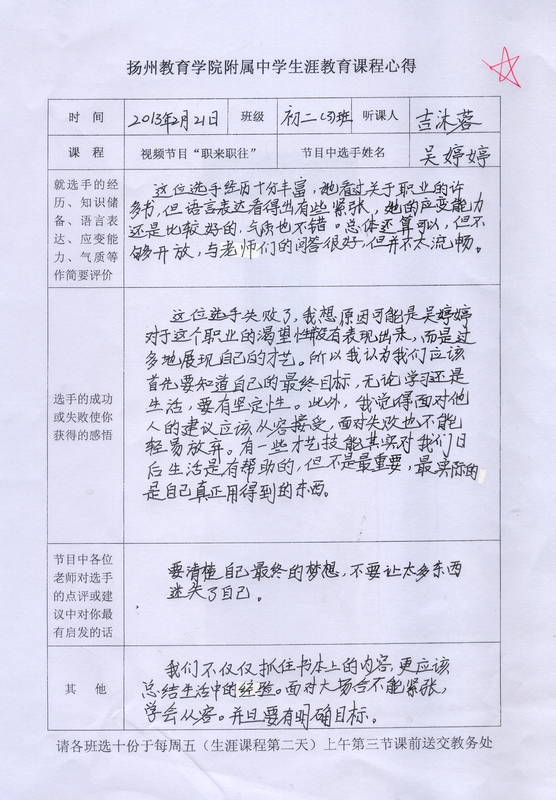 扬州教育学院附属中学生涯教育课程心得
时 间 2013年2月21日 班级 初二(3)班 听课人 吉沐蓉
课 程 视频节目“职来职往” 节目中选手姓名 吴婷婷
就选手的经
历、知识储
备、语言表
达、应变能
力、气质等
作简要评价
这位选手经历十分丰富，她看过关于职业的许
多书，但语言表达看得出有些紧张，她的应变能力
还是比较好的，气质也不错。总体还算可以，但不
够开放，与老师们的问答很好，但并不太流畅。
选手的成功
或失败使你
获得的感悟
这位选手失败了，我想原因可能是吴婷婷
对于这个职业的渴望性没有表现出来，而是过
多地展现自己的才艺。所以我认为我们应该
首先要知道自己的最终目标，无论学习还是
生活，要有坚定性。此外，我觉得面对他
人的建议应该从容接受，面对失败也不能
轻易放弃。有一些才艺技能其实对我们日
后生活是有帮助的，但不是最重要，最实际的
是自己真正用得到的东西。
节目中各位
老师对选手
的点评或建
议中对你最
有启发的话
要清楚自己最终的梦想，不要让太多东西
迷失了自己。
其 他
我们不仅仅抓住书本上的内容，更应该
总结生活中的经验。面对大场合不能紧张，
学会从容。并且要有明确目标。
请各班选十份于每周五（生涯课程第二天）上午第三节课前送交教务处